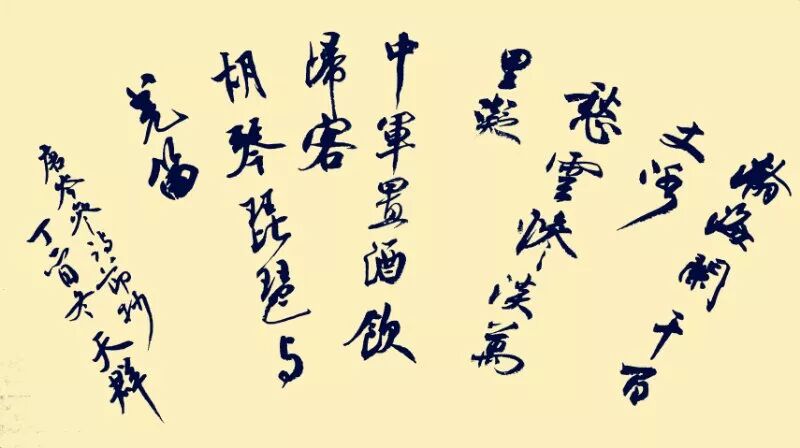 瀚海闌干百
丈冰
愁雲慘淡萬
里凝
中軍置酒飲
歸客
胡琴琵琶与
羌笛
唐岑參詩節抄
丁酉冬 天群